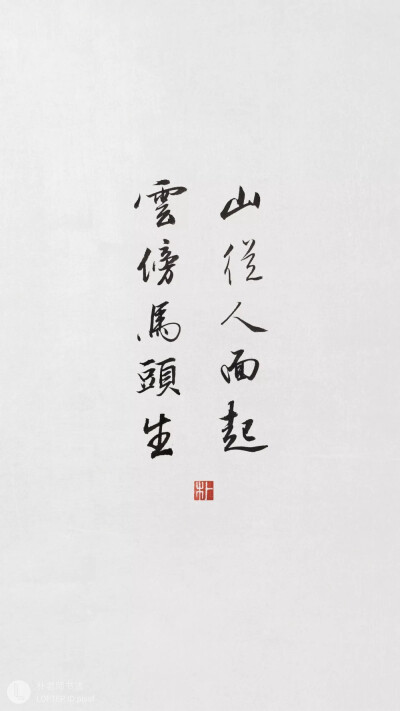 山從人面起
雲傍馬頭生